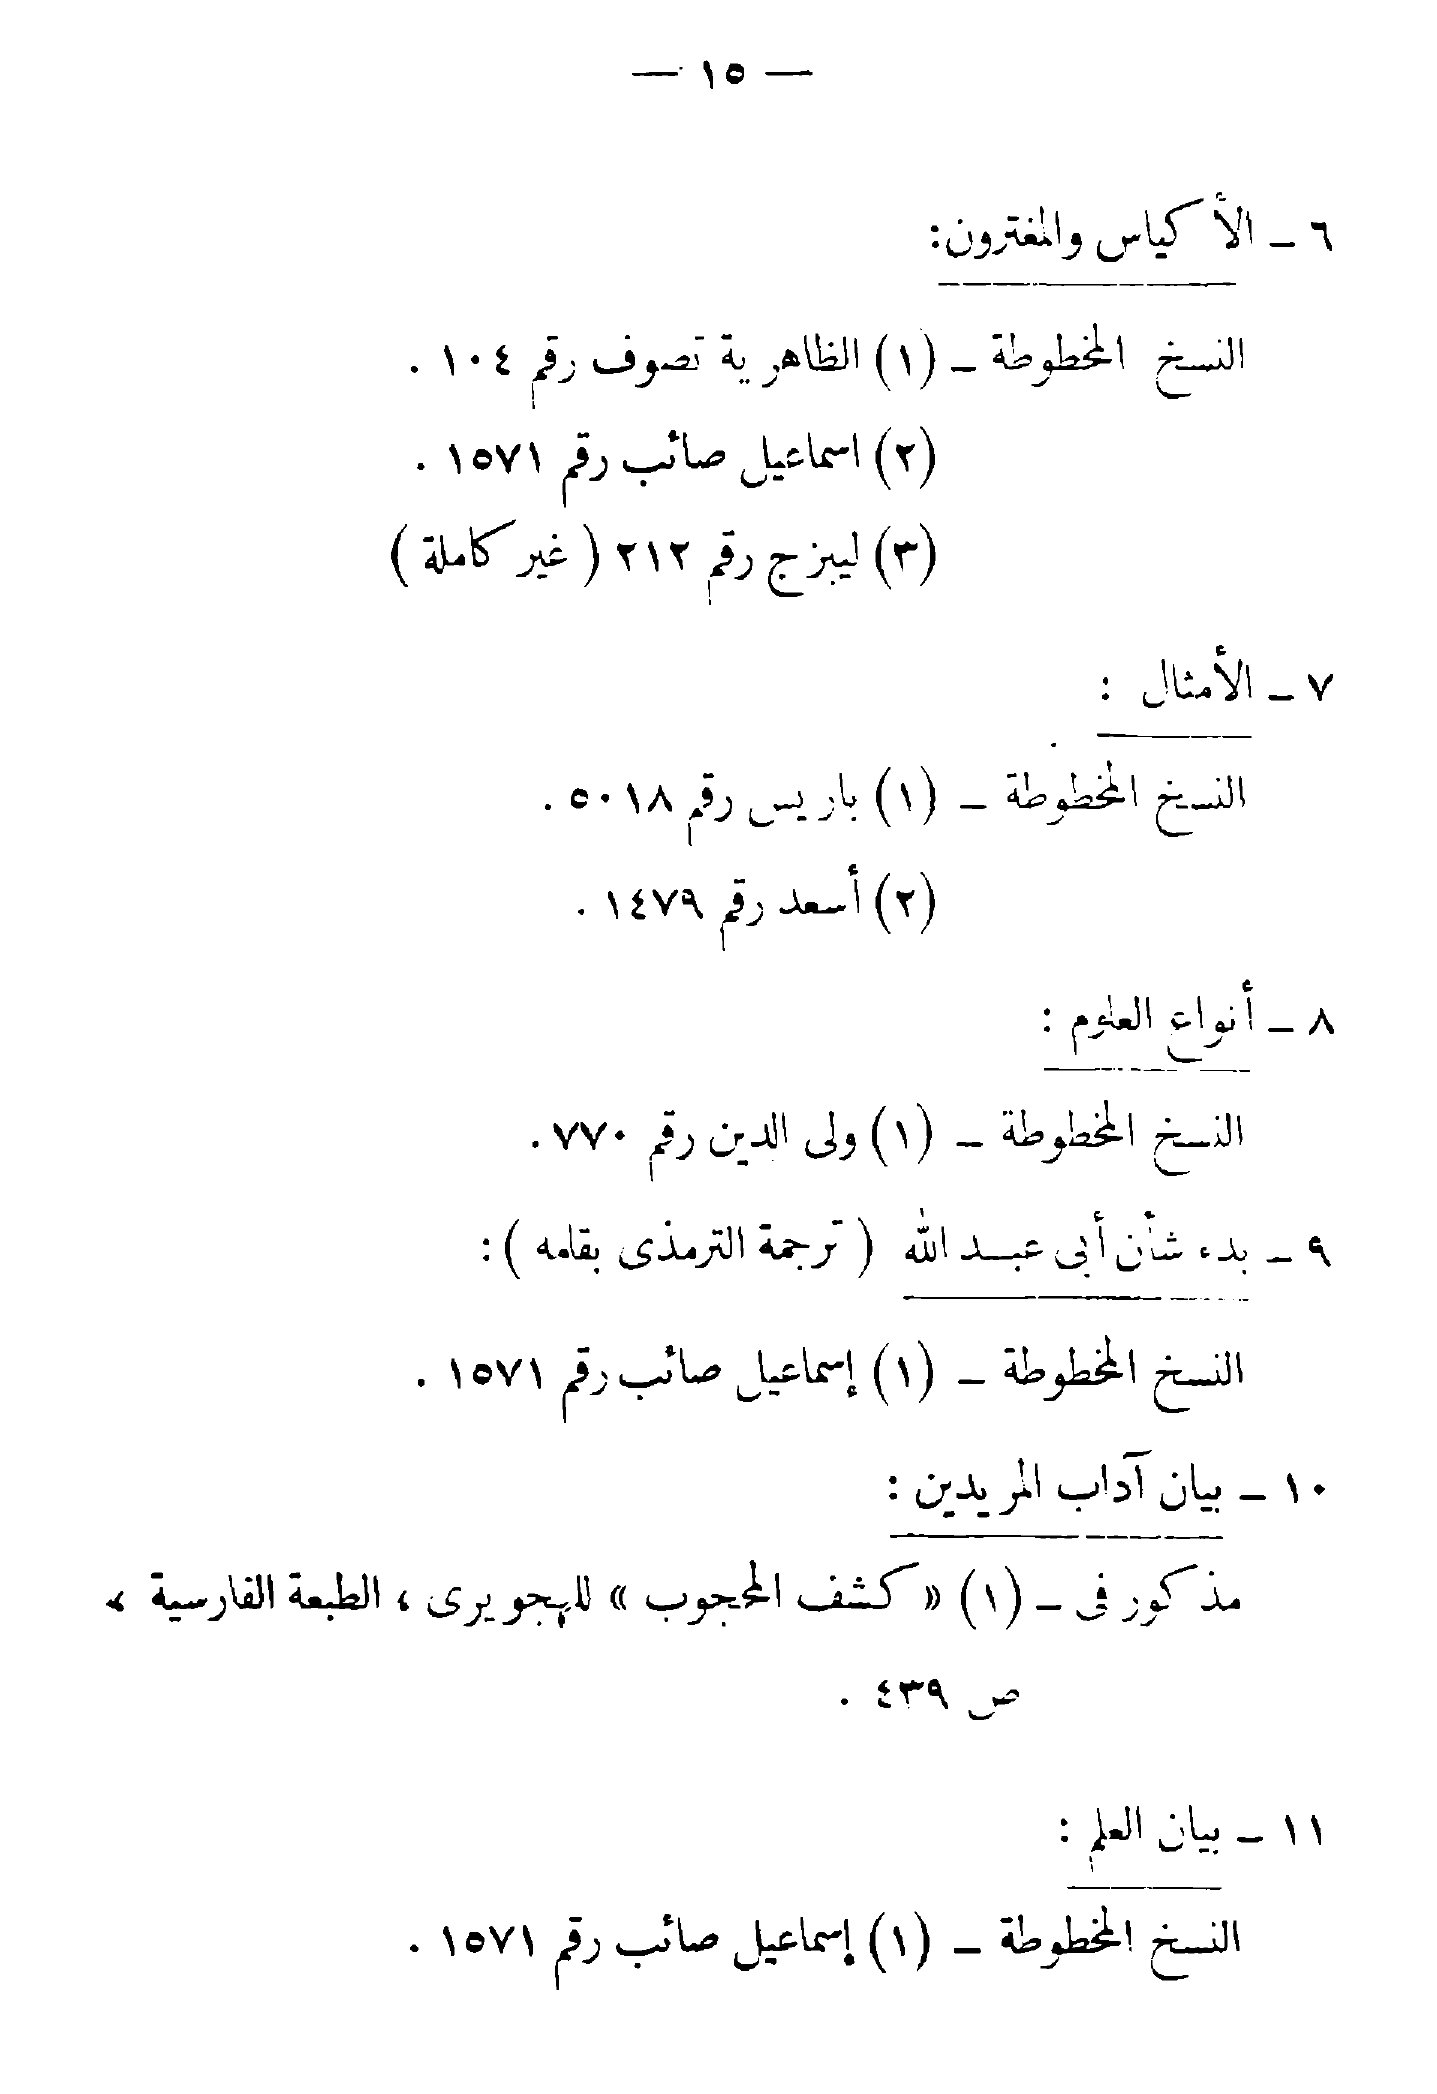 — ١٥ —
٦ — الأكياس والمغترون:
النسخ المخطوطة — (١) الظاهرية تصوف رقم ١٠٤ .
(٢) اسماعيل صائب رقم ١٥٧١ .
(٣) ليبزج رقم ٢١٢ ( غير كاملة )
٧ — الأمثال :
النسخ المخطوطة — (١) باريس رقم ٥٠١٨ .
(٢) أسعد رقم ١٤٧٩ .
٨ — أنواع العلوم :
النسخ المخطوطة — (١) ولى الدين رقم ٧٧٠ .
٩ — بدء شأن أبى عبد الله ( ترجمة الترمذى بقلمه ) :
النسخ المخطوطة — (١) إسماعيل صائب رقم ١٥٧١ .
١٠ — بيان آداب المريدين :
مذكور فى — (١) « كشف المحجوب » للهجويرى ، الطبعة الفارسية ،
ص ٤٣٩ .
١١ — بيان العلم :
النسخ المخطوطة — (١) إسماعيل صائب رقم ١٥٧١ .